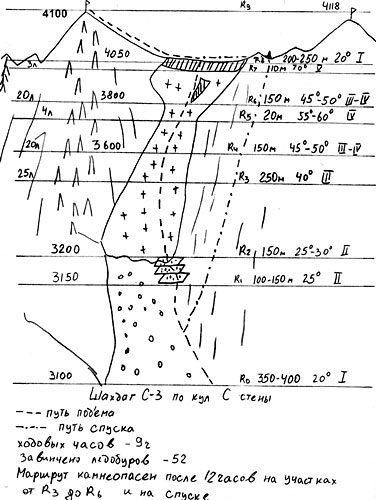 R₃ 4118
4100
4050 R₈ 200-250м 20° I
3л R₇ 110м 70° V
20л 3800 R₆ 150м 45°-50° III-IV
4л R₅ 20м 55°-60° IV
20л 3600 R₄ 150м 45°-50° III-IV
25л R₃ 250м 40° III
3200 R₂ 150м 25°-30° II
3150 R₁ 100-150м 25° II
3100 R₀ 350-400 20° I
Шахдаг С-3 по кул С стены
--- путь подъема
-·-·- путь спуска
ходовых часов - 9ч
Завинчено ледобуров - 52
Маршрут камнеопасен после 12 часов на участках
от R₃ до R₆ и на спуске